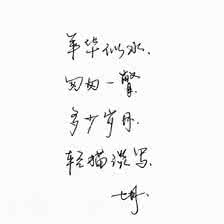 年华似水.
匆匆一瞥.
多少岁月.
轻描淡写.